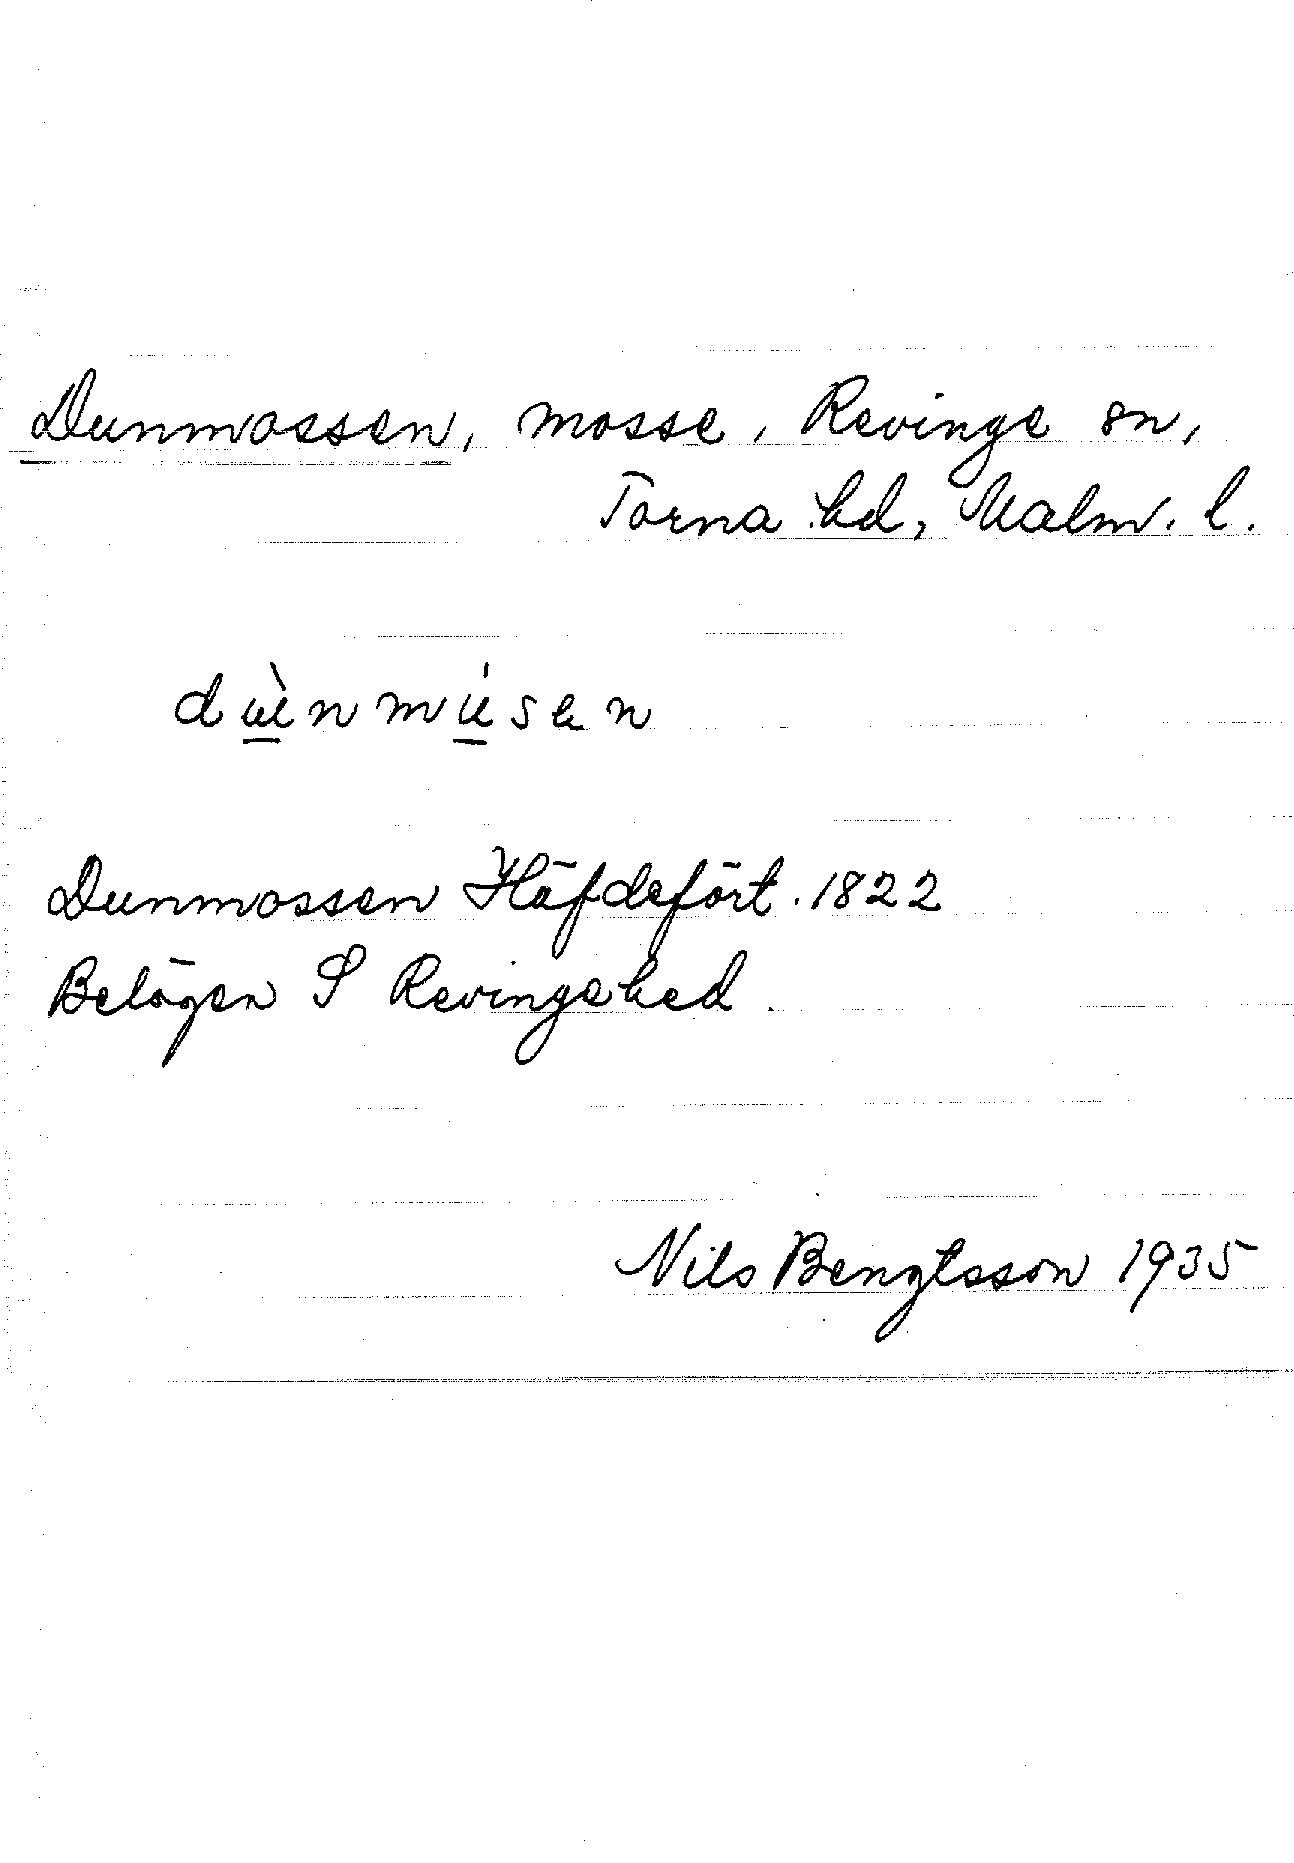 Dunmossen, mosse, Revinge sn,
Torna hd, Malm. l.
dùnmúsen
Dunmossen Häfdeört. 1822
Belägen S Revingehed.
Nils Bengtsson 1935